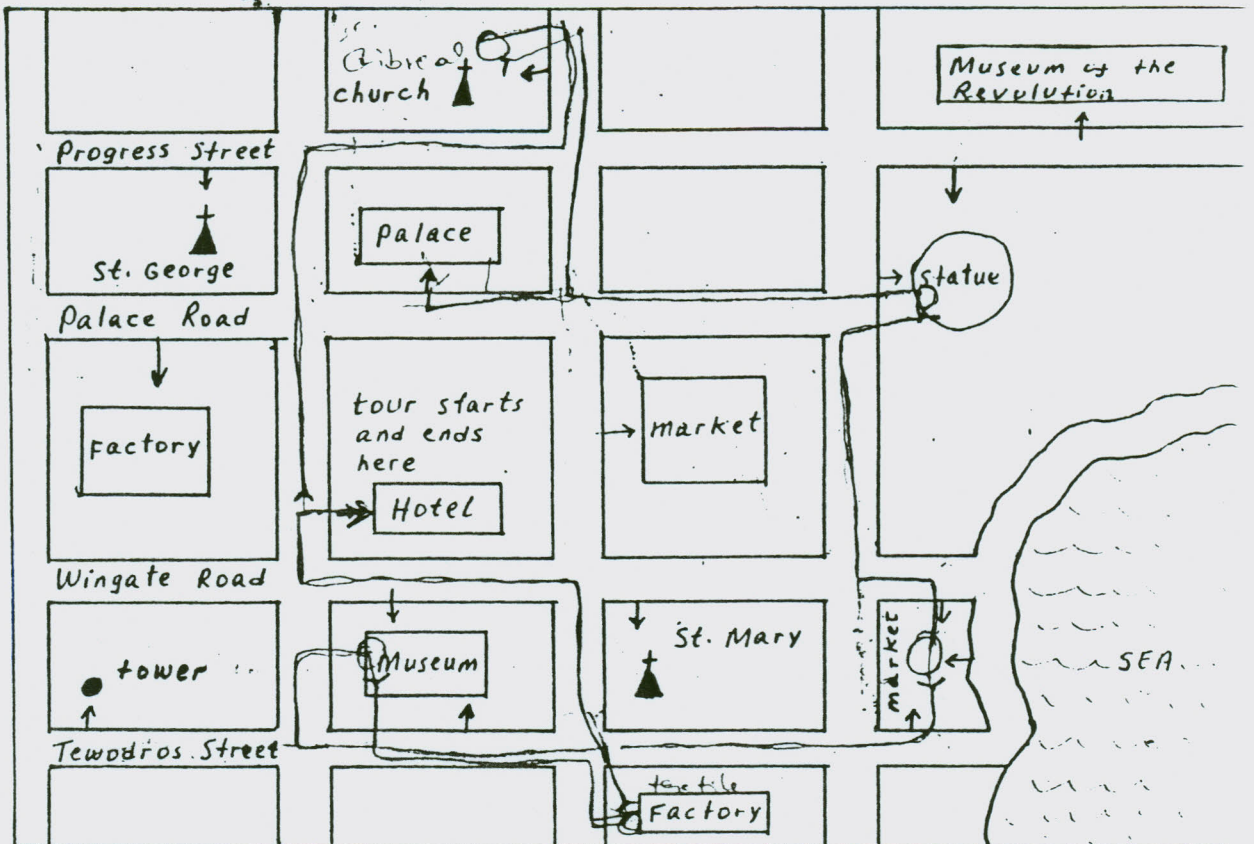 church
Museum of the
Revolution
Progress Street
Palace
St. George
Statue
Palace Road
Factory
tour starts
and ends
here
Hotel
market
Wingate Road
tower
Museum
St. Mary
market
SEA
Tewodros Street
Factory